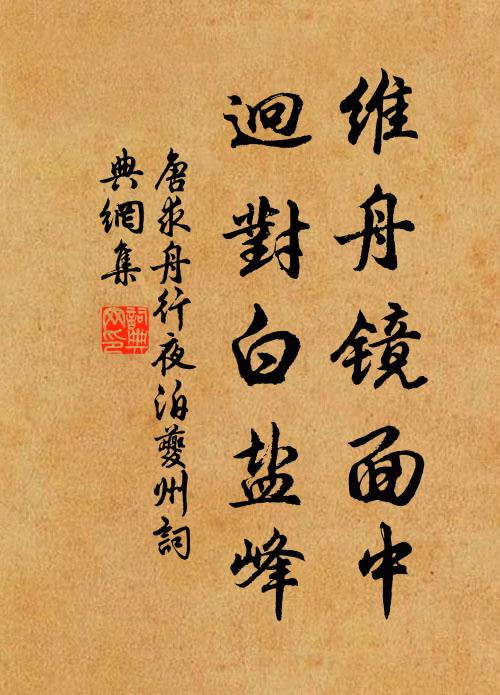 维舟镜面中
迥對白盐峰
唐求舟行夜泊夔州詞
典網集
詞典
网印